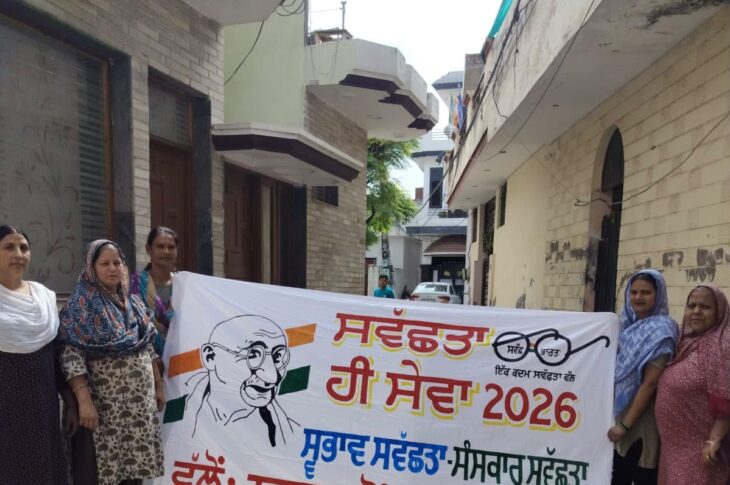 ਸਵੱਛਤਾ
ਹੀ ਸੇਵਾ 2026
ਸਵੱਛ ਭਾਰਤ
ਇੱਕ ਕਦਮ ਸਵੱਛਤਾ ਵੱਲ
ਸ੍ਵਭਾਵ ਸਵੱਛਤਾ-ਸੰਸਕਾਰ ਸਵੱਛਤਾ
ਵੱਲੋਂ: